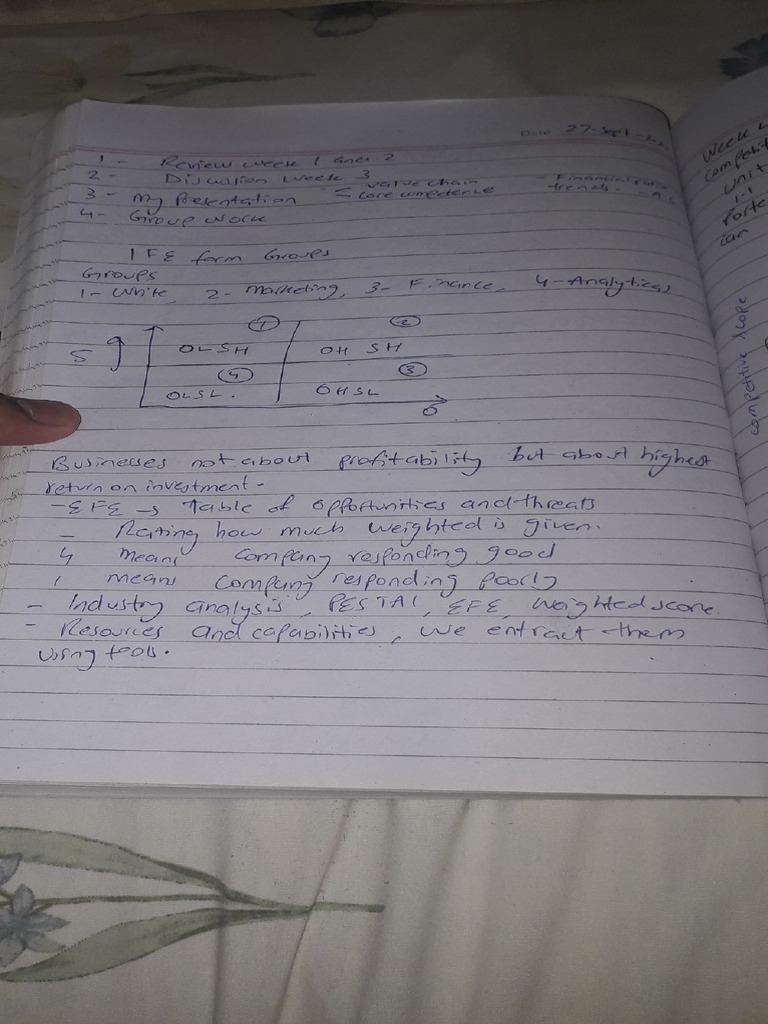 Date 27-Sept-
1 - Review week 1 and 2
2 - Discussion week 3
3 - My Presentation < value chain - Financial ratio
core competence trends.
4 - Group work
IFE form Groups
Groups
1- Write, 2- Marketing, 3- Finance, 4- Analytical
1 2
S OLSH OH SH
4 3
OLSL. OHSL
O
Businesses not about profitability but about highest
return on investment.
- EFE → Table of opportunities and threats
- Rating how much weighted is given.
4 means company responding good
1 means company responding poorly
- Industry analysis, PESTAL, EFE, weighted score.
- Resources and capabilities, we extract them
using tools.
Week 4
Competiti
Unit
1.1
Porte
can
competitive scope